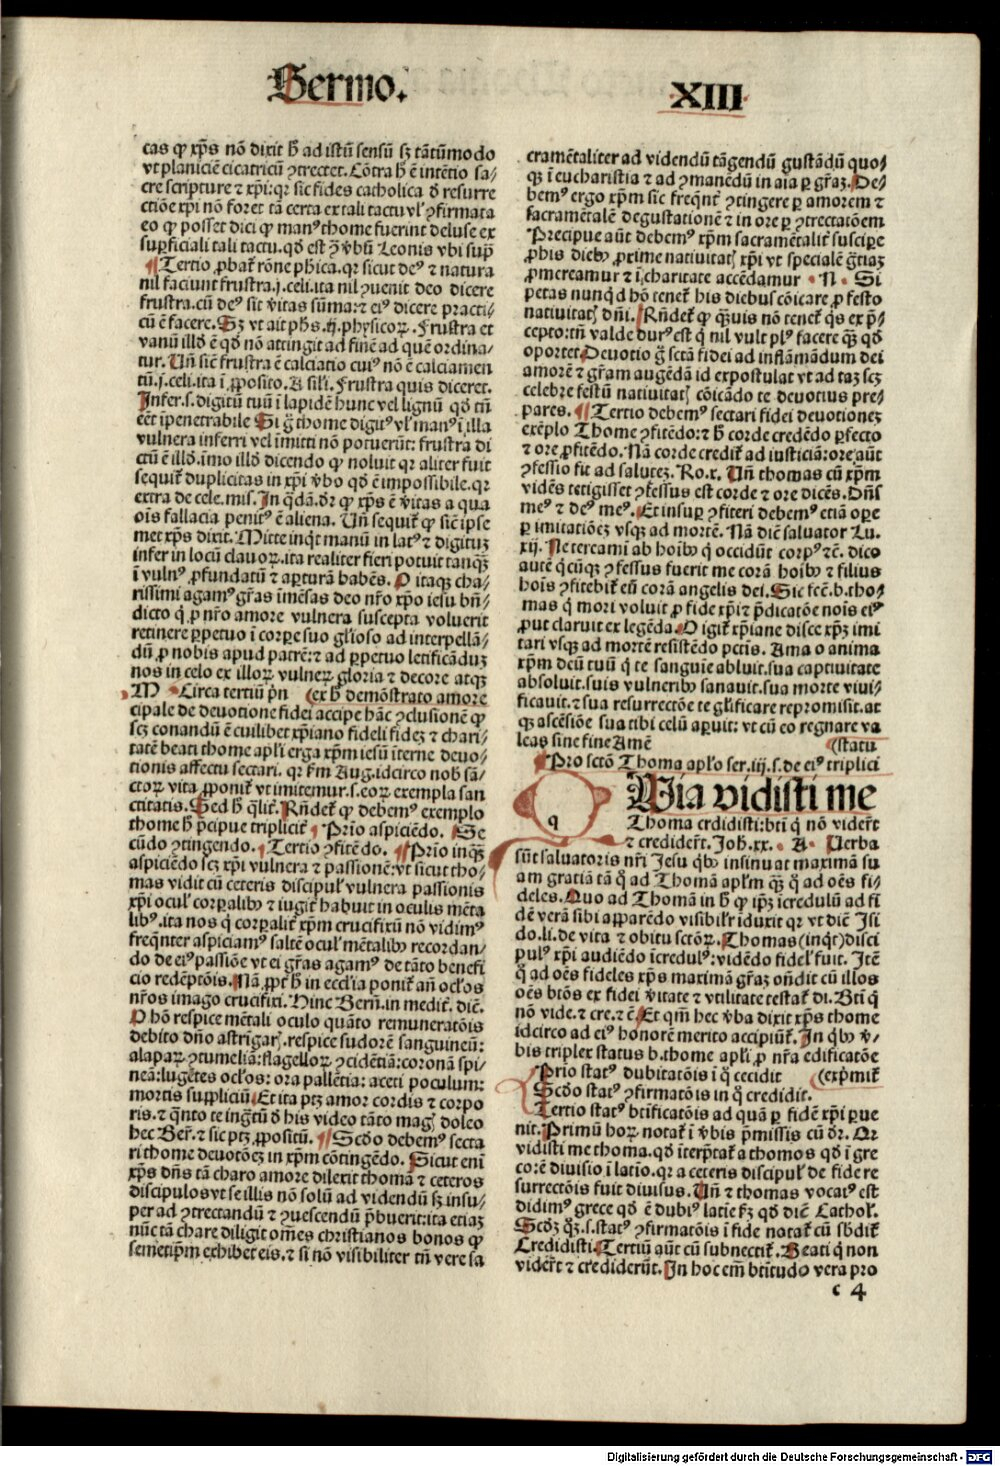 Sermo.
XIII
cas ꝙ xp̄s nō dixit h̄ ad istū sensū sꝫ tātūmodo
vt planiciē cicatricū ꝯtrectet. Cōtra h̄ ē intētio sa⸗
cre scripture ⁊ xpi: qꝛ sic fides catholica d̄ resurre
ctiōe xpi nō foret tā certa ex tali tactu vl̓ ꝯfirmata
eo ꝙ posset dici ꝙ manꝰ thome fuerint deluse ex
suꝑficiali tali tactu. qd̄ est ꝯ̄ v̄bū Leonis vbi supͣ
¶ Tertio ꝓbat̄ rōne ph̄ica. qꝛ sicut deꝰ ⁊ natura
nil faciunt frustra. j. celi. ita nil ꝯuenit deo dicere
frustra. cū deꝰ sit v̄itas sūma: ⁊ eiꝰ dicere practi⸗
cū ē facere. Sꝫ vt ait ph̄s. ij. physicoꝝ. Frustra et
vanū illd̄ ē qd̄ nō attingit ad finē ad quē ordina⸗
tur. Vn̄ sic̄ frustra ē calciatio cuiꝰ nō ē calciamen
tū. j. celi. ita ī ꝓposito. A sil̓i. Frustra quis diceret.
Infer. s. digitū tuū ī lapidē hunc vel lignū qd̄ tn̄
eēt īpenetrabile Si g̊ thome digitꝰ vl̓ manꝰ ī illa
vulnera inferri vel īmitti nō potuerūt: frustra di
ctū ē illd̄. īmo illd̄ dicendo ꝙ noluit qꝛ aliter fuit
sequit̄ duplicitas in xp̄i v̄bo qd̄ ē impossibile. qꝛ
extra de cele. mis. In q̄dā. dꝛ ꝙ xp̄s ē v̄itas a qua
oīs fallacia penitꝰ ē aliena. Vn̄ sequit̄ ꝙ sic̄ ipse
met xp̄s dixit. Mitte inqͥt manū in latꝰ ⁊ digituꝫ
infer in locū clauoꝝ. ita realiter fieri potuit tanqꝫ̄
ī vulnꝰ ꝓfundatū ⁊ aꝑturā habēs. O itaqꝫ cha⸗
rissimi agamꝰ grās īmēsas deo nr̄o xp̄o iesu bn̄⸗
dicto qͥ ꝑ nr̄o amore vulnera suscepta voluerit
retinere ꝑpetuo ī corꝑe suo gl̓ioso ad interpellā⸗
dū ꝓ nobis apud patrē: ⁊ ad ꝑpetuo letificāduꝫ
nos in celo ex illoꝝ vulneꝝ gloria ⁊ decore atqꝫ
M Circa tertiū pͥn (ex h̄ demōstrato amore
cipale de deuotione fidei accipe hāc ꝯclusionē ꝙ
scꝫ conandū ē cuilibet xp̄iano fideli fideꝫ ⁊ chari⸗
tatē beati thome apl̓i erga xp̄m iesū īterne deuo⸗
tionis affectu sectari. qꝛ fm̄ Aug. idcirco nob̄ sā⸗
ctoꝝ vita ꝓponit̄ vt imitemur. s. eoꝝ exempla san
ctitatis. Sed h̄ ql̓it̄. Rn̄det̄ ꝙ debemꝰ exemplo
thome h̄ p̄cipue triplicit̄ Prīo aspiciēdo. Se
cūdo ꝯtingendo. Tertio ꝯfitēdo. ¶ Prīo inqꝫ̄
aspiciēdo scꝫ xp̄i vulnera ⁊ passionē: vt sicut tho⸗
mas vidit cū ceteris discipul̓ vulnera passionis
xp̄i ocul̓ corꝑalibꝰ ⁊ iugit̄ habuit in oculis mēta
libꝰ. ita nos qͥ corꝑalit̄ xp̄m crucifixū nō vidimꝰ
freqn̄ter aspiciamꝰ saltē ocul̓ mētalibꝰ recordan⸗
do de eiꝰ passiōe vt ei grās agamꝰ de tāto benefi
cio redēptōis. Nā ꝓpt̄ h̄ in ecc̄lia ponit̄ an̄ ocl̓os
nr̄os imago crucifixi. Hinc Bern̄. in medit̄. dic̄.
O hō respice mētali oculo quāto remuneratōis
debito dn̄o astrīgarꝭ. respice sudorē sanguineū:
alapaꝝ ꝯtumeliā: flagelloꝝ ꝯcidētiā: coronā spi⸗
neā: lugētes ocl̓os: ora pallētia: aceti poculum:
mortis suppliciū Et ita ptꝫ amor cordis ⁊ corpo
ris. ⁊ qͣnto te ingͣtū d̄ his video tāto magꝭ doleo
hec Ber̄. ⁊ sic ptꝫ ꝓpositū. ¶ Scd̄o debemꝰ secta
ri thome deuotōeꝫ in xp̄m cōtingēdo. Sicut enī
xp̄s dn̄s tā charo amore dilexit thomā ⁊ ceteros
discipulos vt se illis nō solū ad videndū sꝫ insu⸗
per ad ꝯtrectandū ⁊ ꝯuescendū p̄buerit: ita etiaꝫ
nūc tā chare diligit om̄es christianos bonos ꝙ
semetip̄m exhibet eis. ⁊ si nō visibiliter tn̄ vere sa
cramētaliter ad videndū tāgendū gustādū quo⸗
qꝫ ī eucharistia ⁊ ad ꝯmanēdū in aīa ꝑ grāꝫ. De⸗
bemꝰ ergo xp̄m sic̄ freqn̄t̄ ꝯtingere ꝑ amorem ⁊
sacramētalē degustationē ⁊ in ore ꝑ ꝯtrectatōem
Precipue aūt debemꝰ xp̄m sacramētalit̄ susciꝑe
ꝓbis diebꝰ ꝓxime natiuitatꝭ xp̄i vt specialē grāꝫ
ꝓmereamur ⁊ ī charitate accēdamur N. Si
petas nunqͥd hō tenet̄ his diebus cōicare ꝓ festo
natiuitatꝭ dn̄i. Rn̄det̄ ꝙ qͣuis nō tenet̄ qͥs ex p̄⸗
cepto: tn̄ valde durꝰ est qͥ nil vult plꝰ facere qꝫ̄ qd̄
oportet Deuotio g̊ sctā fidei ad inflāmādum dei
amorē ⁊ grām augēdā id expostulat vt ad taꝫ scꝫ
celebre festū natiuitatꝭ cōicādo te deuotius pre⸗
pares. ¶ Tertio debemꝰ sectari fidei deuotioneꝫ
exēplo Thome ꝯfitēdo: ⁊ h̄ corde credēdo ꝑfecto
⁊ ore ꝓfitēdo. Nā corde credit̄ ad iusticiā: ore aūt
ꝯfessio fit ad saluteꝫ. Ro. x. Vn̄ thomas cū xp̄m
vidēs tetigisset ꝯfessus est corde ⁊ ore dicēs. Dn̄s
meꝰ ⁊ deꝰ meꝰ. Et insuꝑ ꝯfiteri debemꝰ etiā oꝑe
ꝑ imitatiōeꝫ vsqꝫ ad mortē. Nā dic̄ saluator Lu.
xij. Ne terreamī ab hoībꝰ qͥ occidūt corpꝰ ⁊c̄. dico
autē qͥcūqꝫ ꝯfessus fuerit me corā hoībꝰ ⁊ filius
hoīs ꝯfitebit̄ eū corā angelis dei. Sic fec̄. b. tho⸗
mas qͥ mori voluit ꝓ fide xp̄i ⁊ p̄dicatōe noīs eiꝰ
ꝓut claruit ex legēda. O igit̄ xp̄iane disce xp̄ꝫ imi
tari vsqꝫ ad mortē resistēdo pctīs. Ama o anima
xp̄m deū tuū qͥ te sanguīe abluit. sua captiuitate
absoluit. suis vulneribꝰ sanauit. sua morte viui⸗
ficauit. ⁊ sua resurrectōe te gl̓ificare repromisit. at
qꝫ ascēsiōe sua tibi celū aꝑuit: vt cū eo regnare va
leas sine fine Amē (statu
¶ Pro sctō Thoma apl̓o ser. iij. s. de eiꝰ triplici
Qq
Uia vidisti me
Thoma crdidisti: bt̄i qͥ nō vider̄t
⁊ credider̄t. Joh̄. xx. A Verba
sūt saluatoris nr̄i Jesu qͥbꝰ insinuat maximā su
am gratiā tā qͣ ad Thomā apl̓m qꝫ̄ qͣ ad oēs fi⸗
deles. Quo ad Thomā in h̄ ꝙ ip̄ꝫ īcredulū ad fi
dē verā sibi apparēdo visibilr̄ īduxit qꝛ vt dic̄ Jsi
do. li. de vita ⁊ obitu sctōꝝ. Thomas (inqͥt) disci
pulꝰ xp̄i audiēdo īcredulꝰ: vidēdo fidel̓ fuit. Itē
qͣ ad oēs fideles xp̄s maximā grāꝫ on̄dit cū illos
oēs bt̄os ex fidei v̄itate ⁊ vtilitate testat̄ di. Bt̄i qͥ
nō vide. ⁊ cre. ⁊ c̄. Et qm̄ hec v̄ba dixit xp̄s thome
idcirco ad eiꝰ honorē merito accipiūt̄. In qͥbꝰ v̄⸗
bis triplex status b. thome apl̓i ꝓ nr̄a edificatōe
Prio statꝰ dubitatōis ī qͦ cecidit (exp̄mit̄
Scd̄o statꝰ ꝯfirmatōis in qͦ credidit.
Tertio statꝰ bt̄ificatōis ad quā ꝑ fidē xp̄i ꝑue
nit. Primū hoꝝ notat̄ ī v̄bis p̄missis cū dꝛ. Qꝛ
vidisti me thoma. qd̄ īterp̄tat̄ a thomos qd̄ ī gre
co: ē diuisio ī latio. qꝛ a ceteris discipul̓ de fide re
surrectōis fuit diuisus. Vn̄ ⁊ thomas vocatꝰ est
didimꝰ grece qd̄ ē dubiꝰ latīe fꝫ qd̄ dic̄ Cathol̓.
Scd̄ꝫ qͦꝫ. s. statꝰ ꝯfirmatōis ī fide notat̄ cū sb̄dit̄
Credidisti. Tertiū aūt cū subnectit̄. Beati qͥ non
vider̄t ⁊ crediderūt. In hoc em̄ bt̄itudo vera pro
c 4
Digitalisierung gefördert durch die Deutsche Forschungsgemeinschaft - DFG